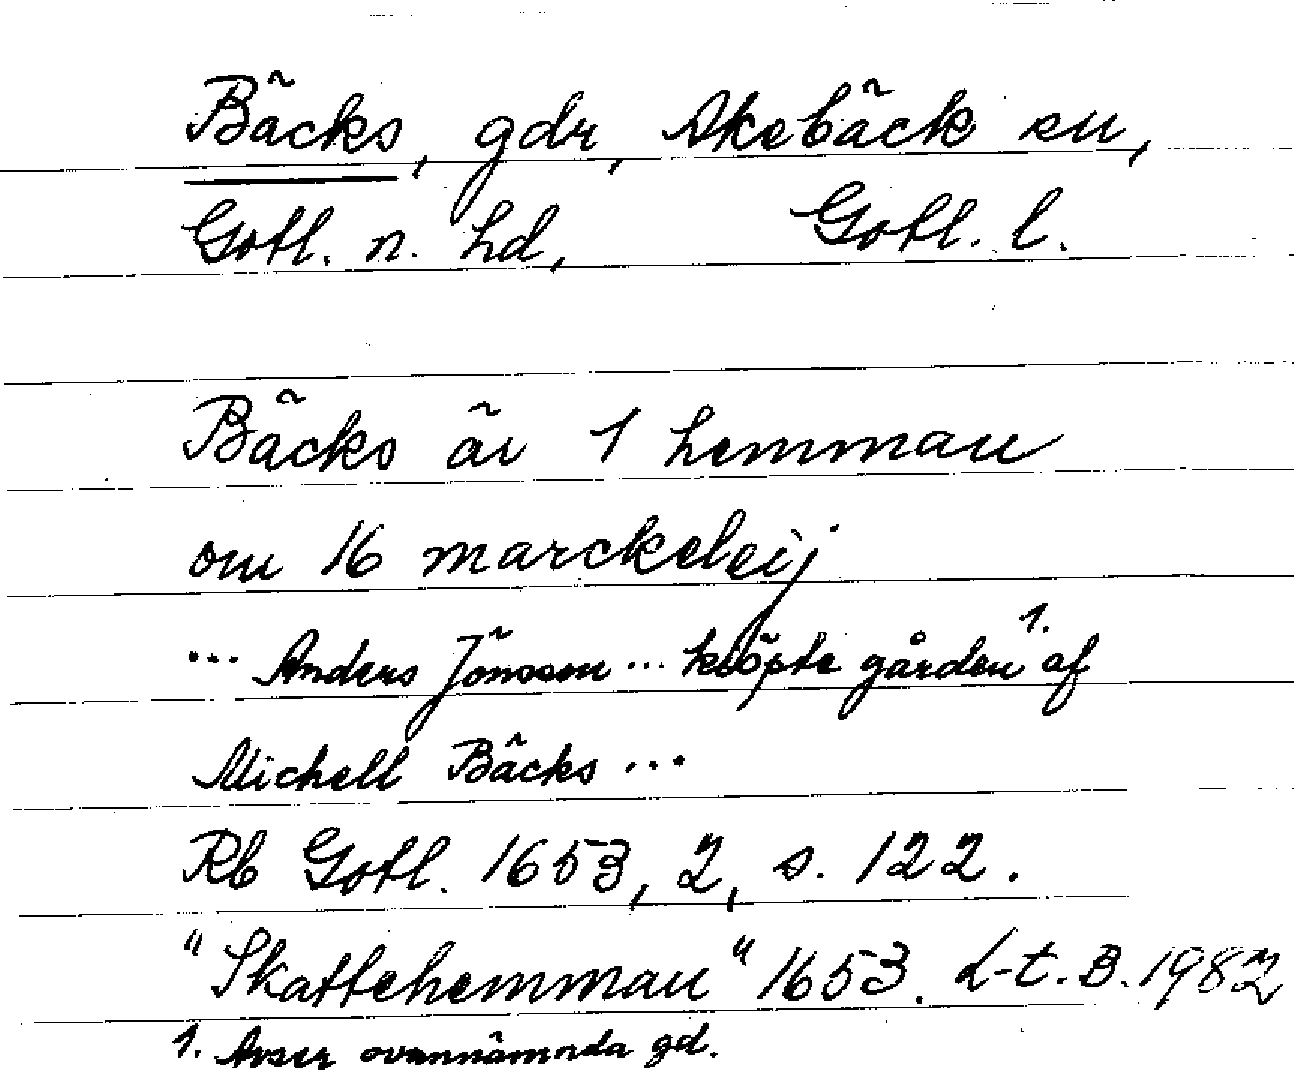 Bäcks, gdr, Akebäck sn,
Gotl. n. hd, Gotl. l.
Bäcks är 1 hemman
om 16 marckeleij
... Anders Jönsson ... kiöpte gården 1. af
Michell Bäcks ...
Rb Gotl. 1653, 2, s. 122.
"Skattehemman" 1653. L-t. B. 1982
1. Avser ovannämnda gd.